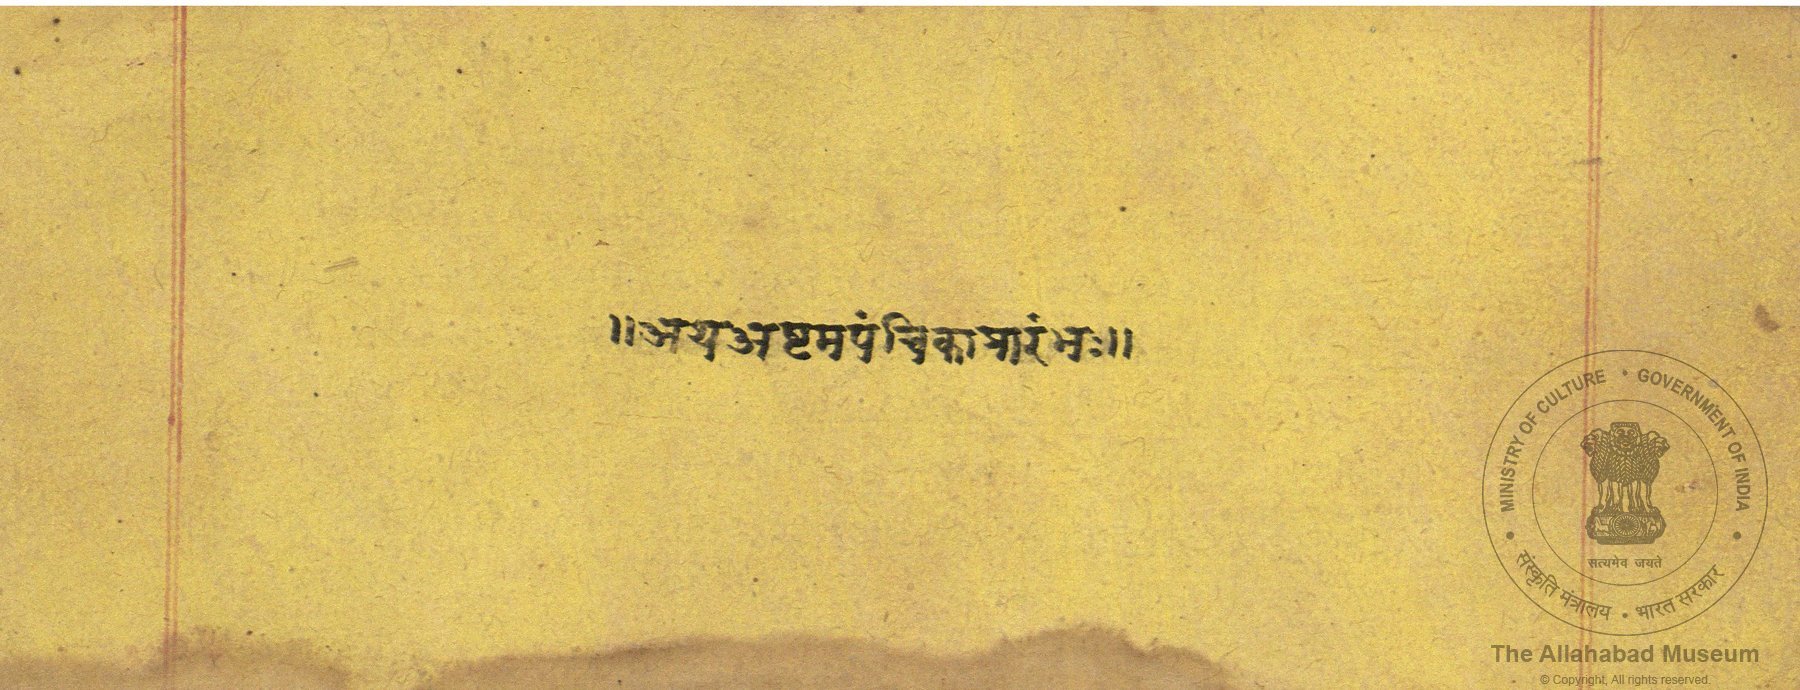 ॥अथअष्टमपंचिकाप्रारंभः॥
MINISTRY OF CULTURE • GOVERNMENT OF INDIA
सत्यमेव जयते
संस्कृति मंत्रालय • भारत सरकार
The Allahabad Museum
© Copyright, All rights reserved.